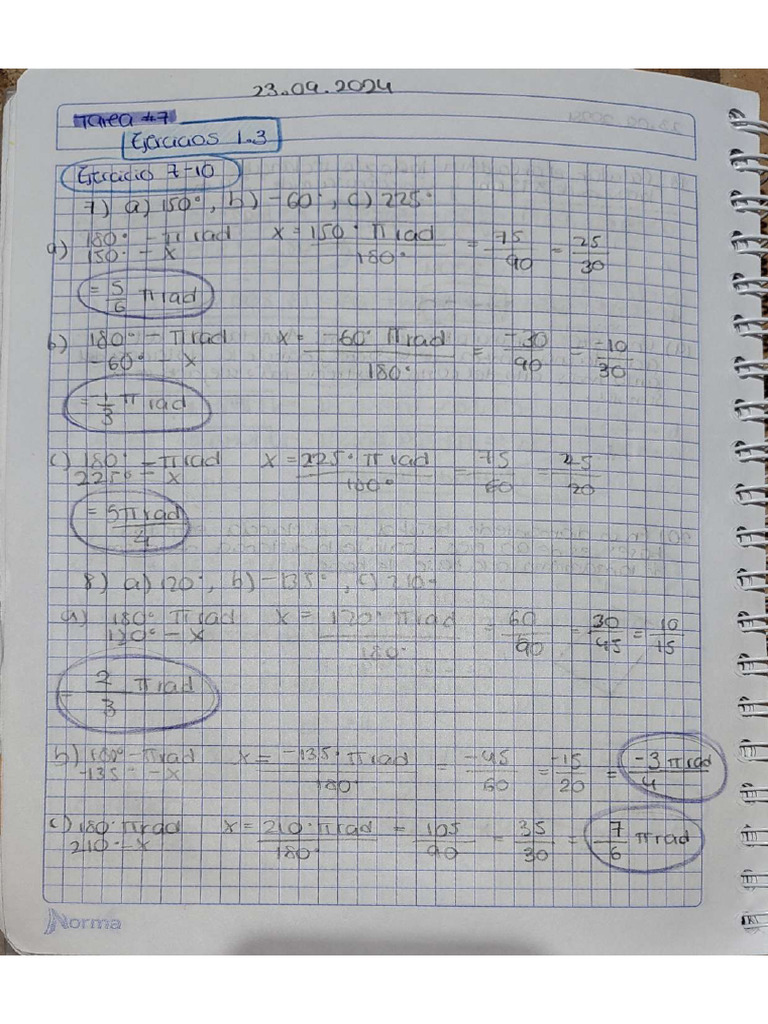 23.09.2024
Tarea #7
Ejercicios 1.3
Ejercicio 7-10
7) a) 150°, b) -60°, c) 225°
a) 180° - π rad x = 150° π rad / 180° = 75/90 = 25/30
150° - x
= 5/6 π rad
b) 180° - π rad x = -60° π rad / 180° = -30/90 = -10/30
-60° - x
= -1/3 π rad
c) 180° - π rad x = 225° π rad / 180° = 75/60 = 25/20
225° - x
= 5π rad / 4
8) a) 120°, b) -135°, c) 210°
a) 180° π rad x = 120° π rad / 180° = 60/90 = 30/45 = 10/15
120° - x
= 2/3 π rad
b) 180° - π rad x = -135° π rad / 180° = -45/60 = -15/20 = -3 π rad / 4
-135° - x
c) 180° π rad x = 210° π rad / 180° = 105/90 = 35/30 = 7/6 π rad
210 - x
Norma